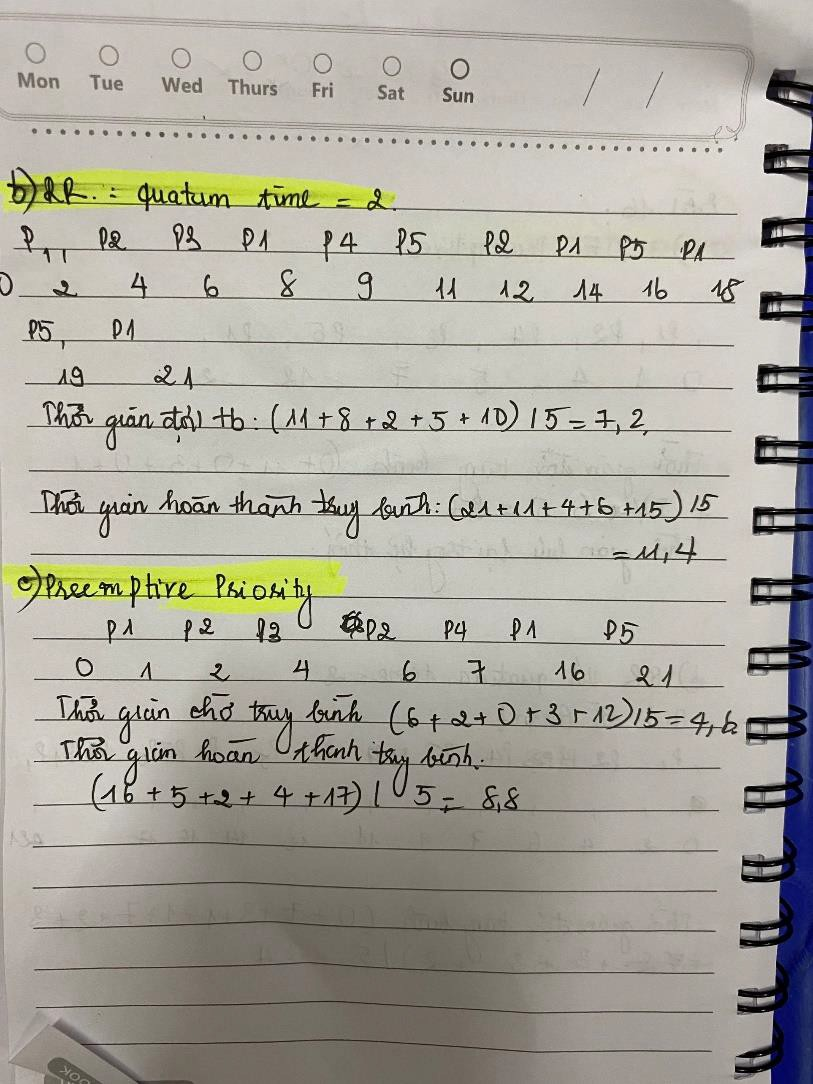 Mon Tue Wed Thurs Fri Sat Sun / /
b) RR. : quatum time = 2.
P1, P2 P3 P1 P4 P5 P2 P1 P5 P1
0 2 4 6 8 9 11 12 14 16 18
P5, P1
19 21
Thời gian đợi tb: (11+8+2+5+10)/5=7,2
Thời gian hoàn thành truy bình: (21+11+4+6+15)/5
=11,4
c) Preemptive Priority
P1 P2 P3 P2 P4 P1 P5
0 1 2 4 6 7 16 21
Thời gian chờ truy bình (6+2+0+3+12)/5=4,6
Thời gian hoàn thành truy bình.
(16+5+2+4+17)/5= 8,8